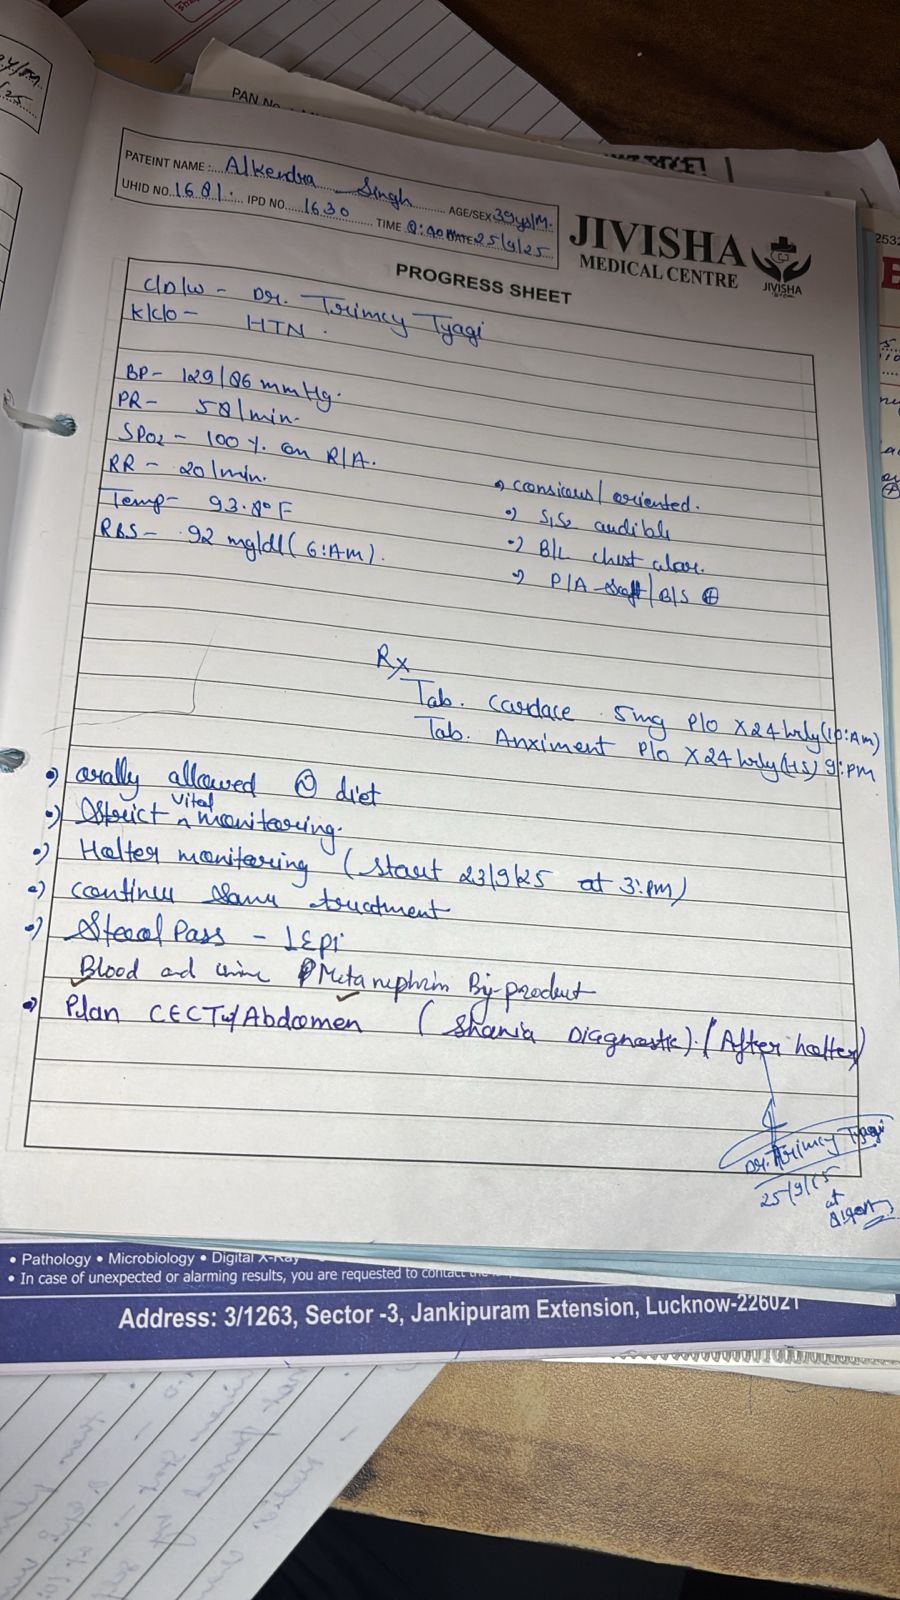 PAN No
PATEINT NAME: Alkendra Singh AGE/SEX 39ys/M.
UHID NO. 1681. IPD NO. 1630 TIME 8:00 DATE 25/9/25
JIVISHA
MEDICAL CENTRE
JIVISHA
PROGRESS SHEET
C/D/W - Dr. Trimcy Tyagi
K/C/O - HTN.
BP- 129/86 mmHg.
PR- 58/min.
SPO2 - 100 %. on R/A.
RR - 20/min.
Temp- 93.8°F
RBS - 92 mg/dl (6:AM).
consicous/ oriented.
S1S2 audible
B/L chest clear.
P/A - soft/B/S ⊕
Rx
Tab. Cardace 5mg P/O X24 hrly (10:AM)
Tab. Anximent P/O X24 hrly (HS) 9:PM
orally allowed Ⓝ diet
Strict vital monitoring.
Halter monitoring (start 23/9/25 at 3:PM)
continue same treatment
Stool Pass - 1 Epi
Blood and urine Metanephrin By-product
Plan CECT w/Abdomen ( Shania Diagnostic). (After halter)
Dr. Trimcy Tyagi
25/9/25
at
• Pathology • Microbiology • Digital X-Ray
• In case of unexpected or alarming results, you are requested to contact
Address: 3/1263, Sector -3, Jankipuram Extension, Lucknow-226021